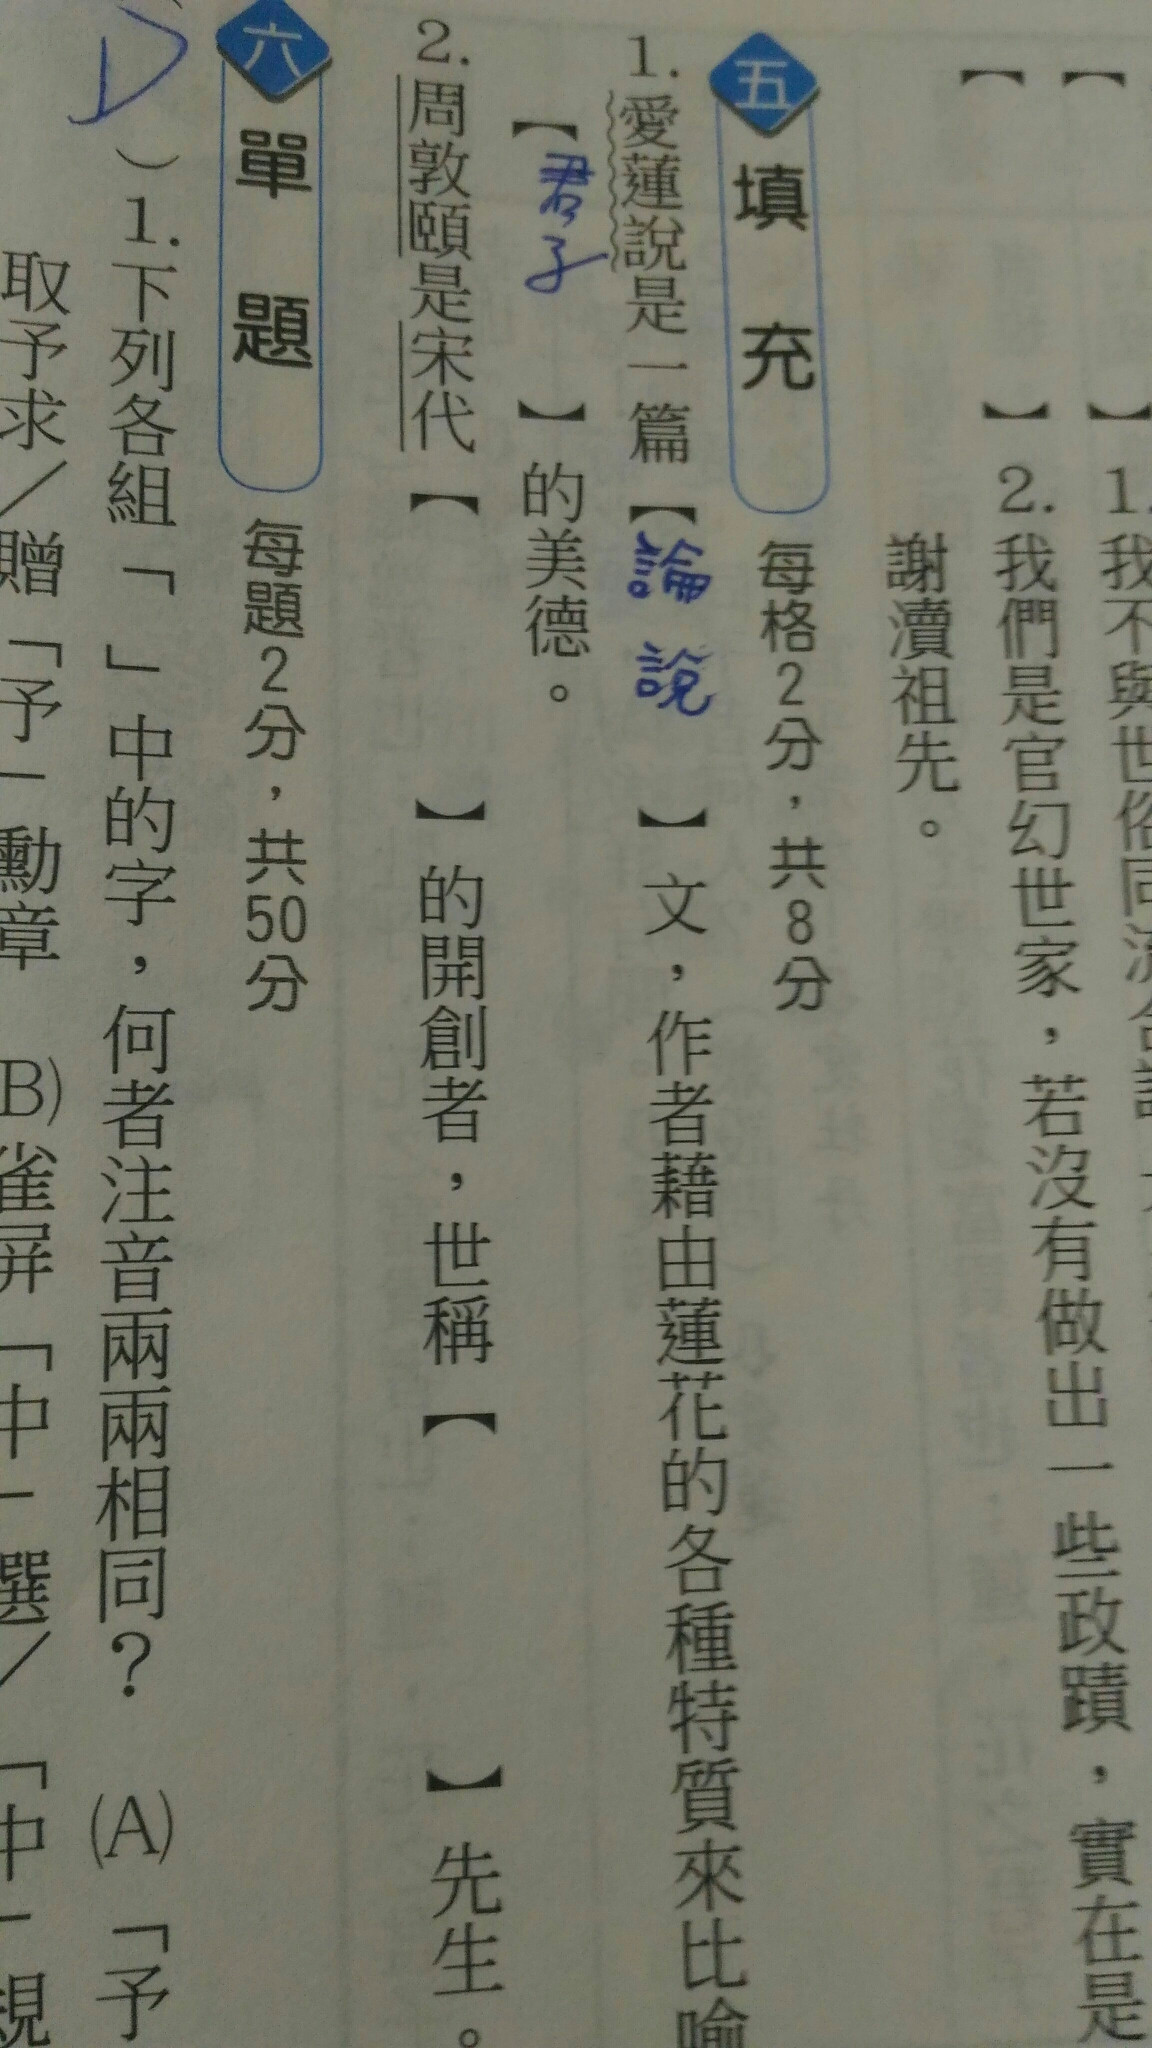 1.我不與世俗同流合
【　】2.我們是官幻世家，若沒有做出一些政蹟，實在是
謝瀆祖先。
五 填充 每格2分，共8分
1.愛蓮說是一篇【論說】文，作者藉由蓮花的各種特質來比喻
【君子】的美德。
2.周敦頤是宋代【　】的開創者，世稱【　】先生。
六 單題 每題2分，共50分
D）1.下列各組「　」中的字，何者注音兩兩相同？ (A)「予
取予求／贈「予」勳章 (B)雀屏「中」選／「中」規